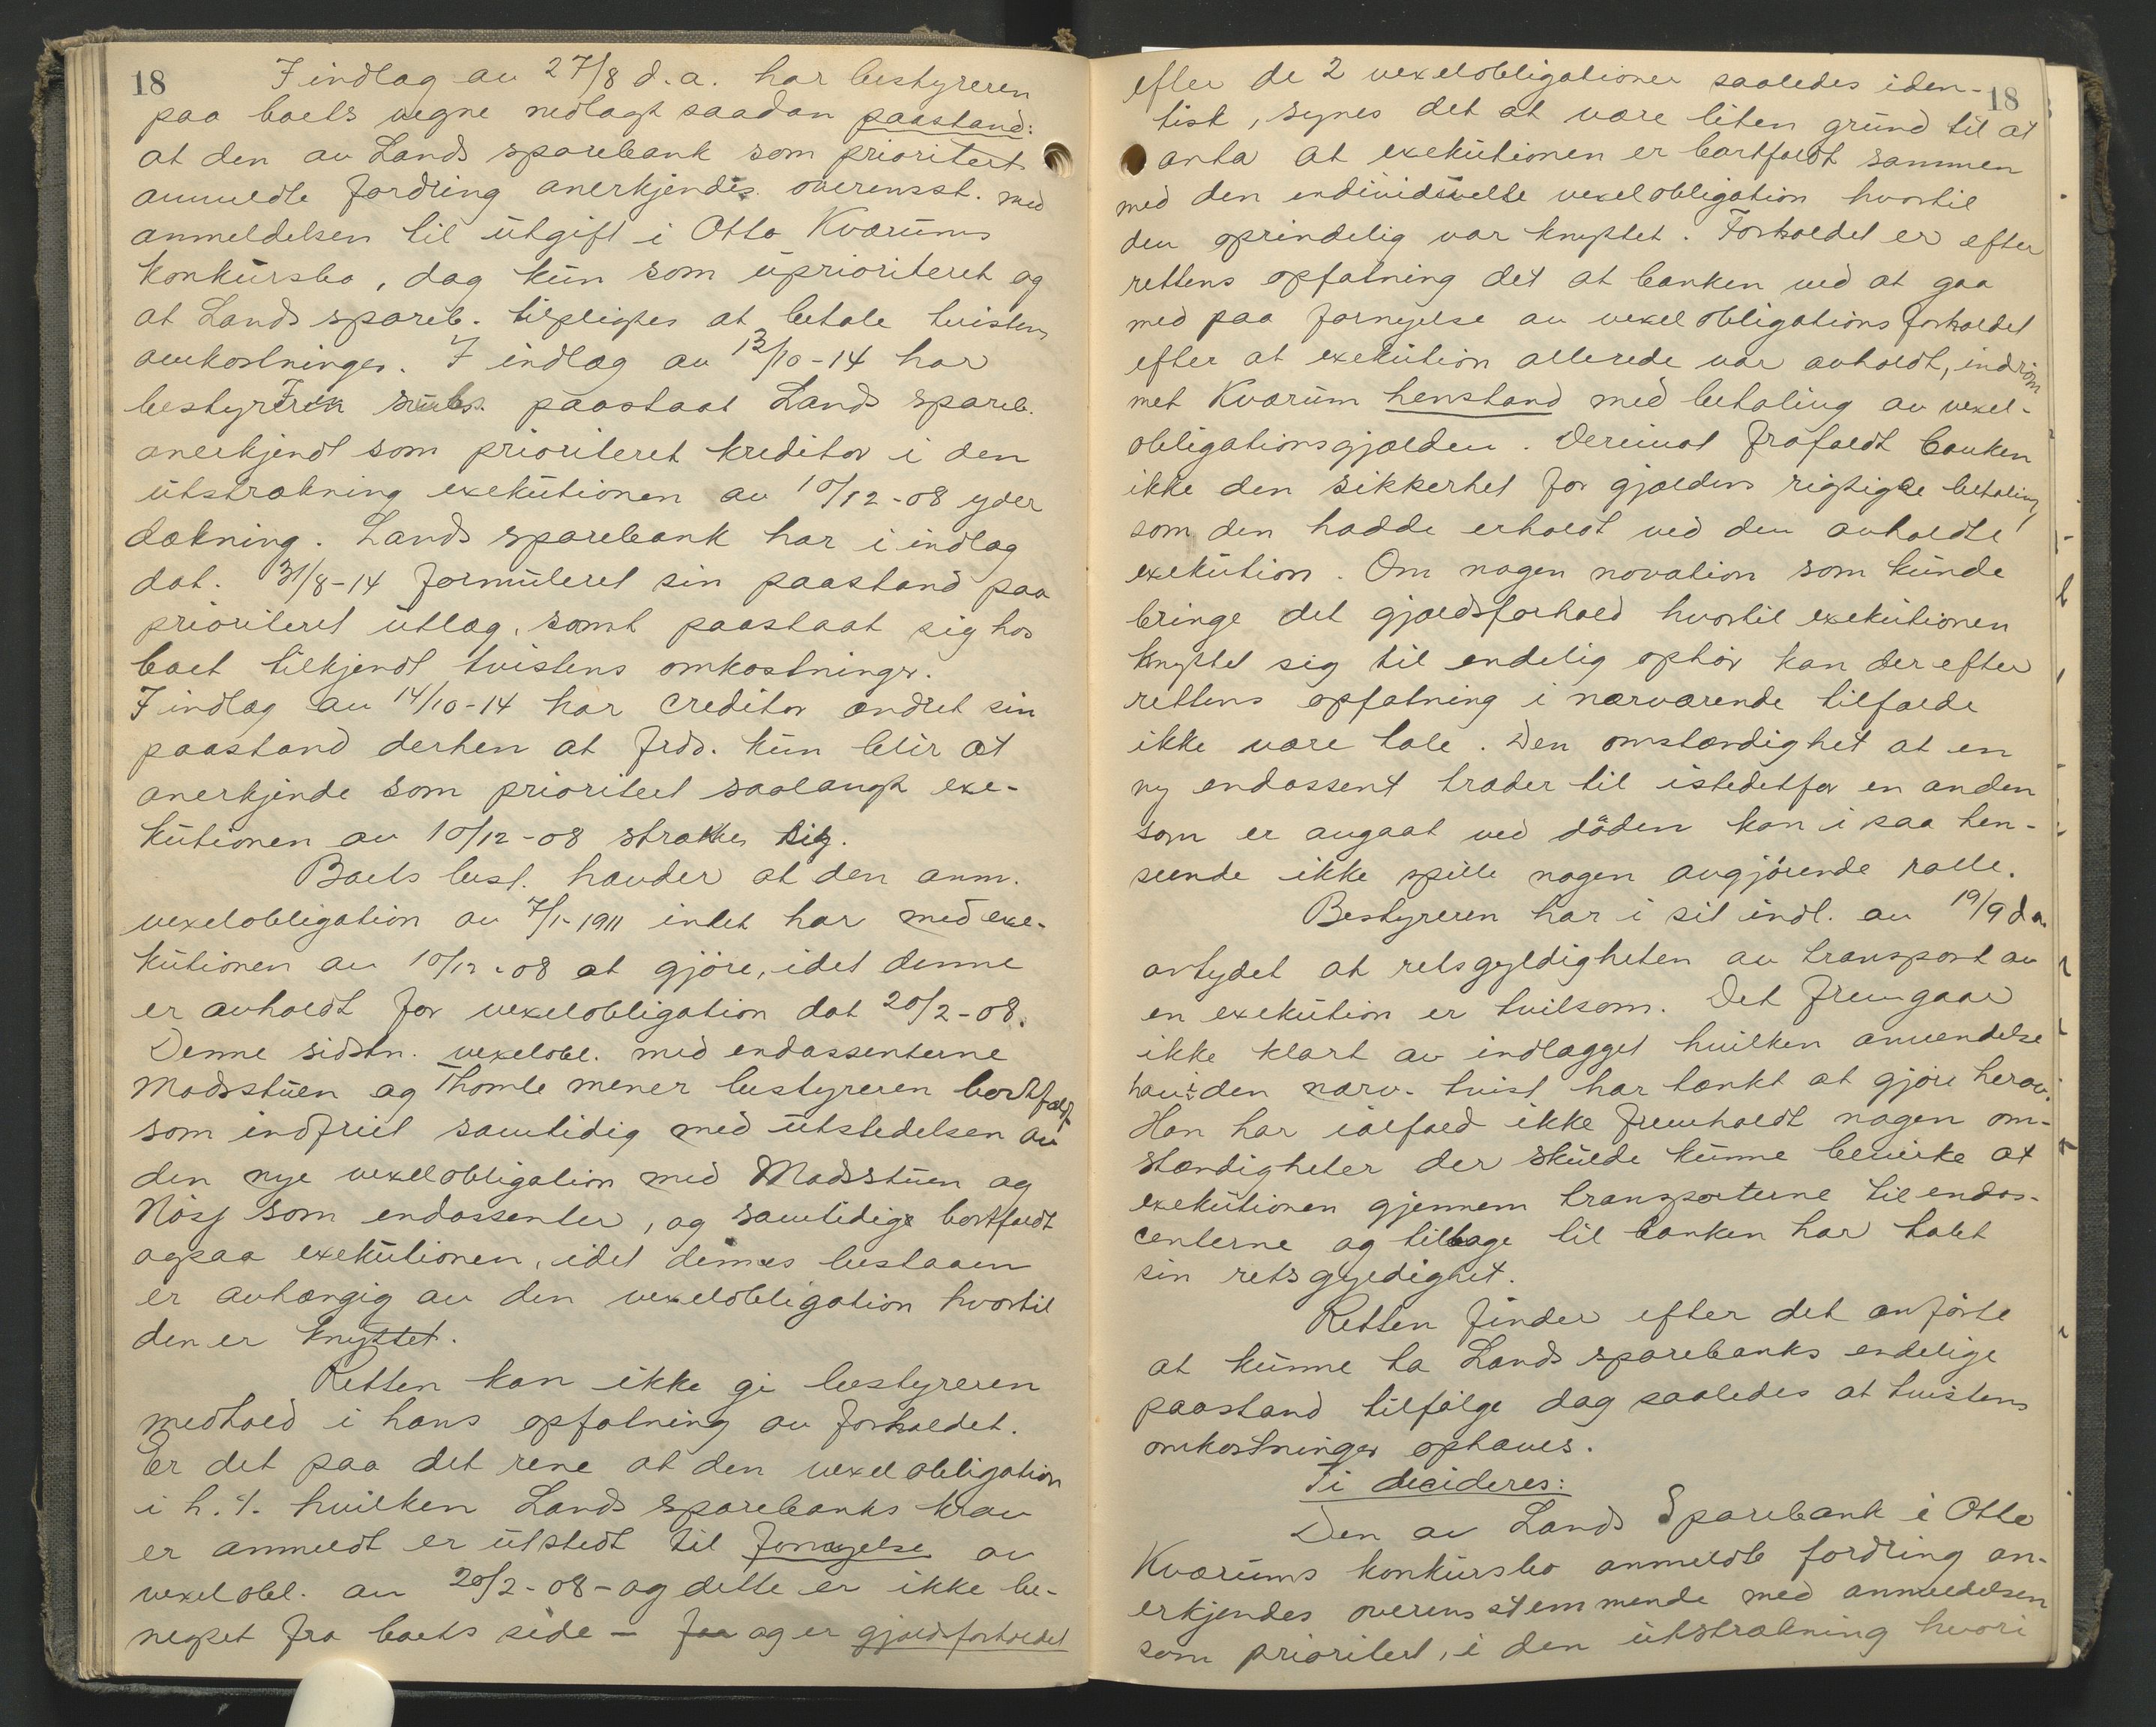 18
I indlæg av 27/8 d.a. har bestyreren
paa boets vegne nedlagt saadan paastand:
at den av Lands sparebank som prioritert
anmeldte fordring anerkjendes overensst. med
anmeldelsen til utgift i Otto Kværums
konkursbo, dog kun som uprioriteret og
at Lands spareb. tilpligtes at betale tvistens
omkostninger. I indlæg av 13/10-14 har
bestyreren subs. paastaat Lands spareb.
anerkjendt som prioriteret kreditor i den
utstrækning exekutionen av 10/12-08 yder
dækning. Lands sparebank har i indlæg
dat. 31/8-14 formuleret sin paastand paa
prioriteret utlæg, samt paastaat sig hos
boet tilkjendt tvistens omkostninger.
I indlæg av 14/10-14 har creditor ændret sin
paastand derhen at frdr. kun blir at
anerkjende som prioritert saalangt exe-
kutionen av 10/12-08 strækker sig.
Boets best. hævder at den anm.
vexelobligation av 7/1-1911 intet har med exe-
kutionen av 10/12-08 at gjöre, idet denne
er avholdt for vexelobligation dat 20/2-08.
Denne sidstn. vexelobl. med endossenterne
Madsstuen og Thomle mener bestyreren bortfaldt
som indfriet samtidig med utstedelsen av
den nye vexelobligation med Madsstuen og
Nösf som endossenter, og samtidig bortfaldt
ogsaa exekutionen, idet dennes bestaaen
er avhængig av den vexelobligation hvortil
den er knyttet.
Retten kan ikke gi bestyreren
medhold i hans opfatning av forholdet.
Er det paa det rene at den vexelobligation
i h.t. hvilken Lands sparebanks krav
er anmeldt er utstedt til fornyelse av
vexelobl. av 20/2-08 - og dette er ikke be-
negtet fra boets side - og er gjældsforholdet
18
efter de 2 vexelobligationer saaledes iden-
tisk, synes det at være liten grund til at
anta at exekutionen er bortfaldt sammen
med den individuelle vexelobligation hvortil
den oprindelig var knyttet. Forholdet er efter
rettens opfatning det at banken ved at gaa
med paa fornyelse av vexelobligationsforholdet
efter at exekution allerede var avholdt, indröm
met Kværum henstand med betaling av vexel-
obligationsgjælden. Derimot frafaldt banken
ikke den sikkerhet for gjældens rigtige betaling,
som den hadde erholdt ved den avholdte
exekution. Om nogen novation som kunde
bringe det gjældsforhold hvortil exekutionen
knyttet sig til endelig ophör kan der efter
rettens opfatning i nærværende tilfælde
ikke være tale. Den omstændighet at en
ny endossent træder til istedetfor en anden
som er avgaat ved döden kan i saa hen-
seende ikke spille nogen avgjörende rolle.
Bestyreren har i sit indl. av 19/9 d.a.
antydet at retsgyldigheten av transport av
en exekution er tvilsom. Det fremgaar
ikke klart av indlægget hvilken anvendelse
han i den nærv. tvist har tænkt at gjöre herav.
Han har ialfald ikke fremholdt nogen om-
stændigheter der skulde kunne bevirke at
exekutionen gjennem transporterne til endos-
centerne og tilbage til banken har tabt
sin retsgyldighet.
Retten finder efter det anförte
at kunne ta Lands sparebanks endelige
paastand tilfölge dog saaledes at tvistens
omkostninger ophæves.
Ti decideres:
Den av Lands Sparebank i Otto
Kværums konkursbo anmeldte fordring an-
erkjendes overensstemmende med anmeldelsen
som prioritert, i den utstrækning hvori